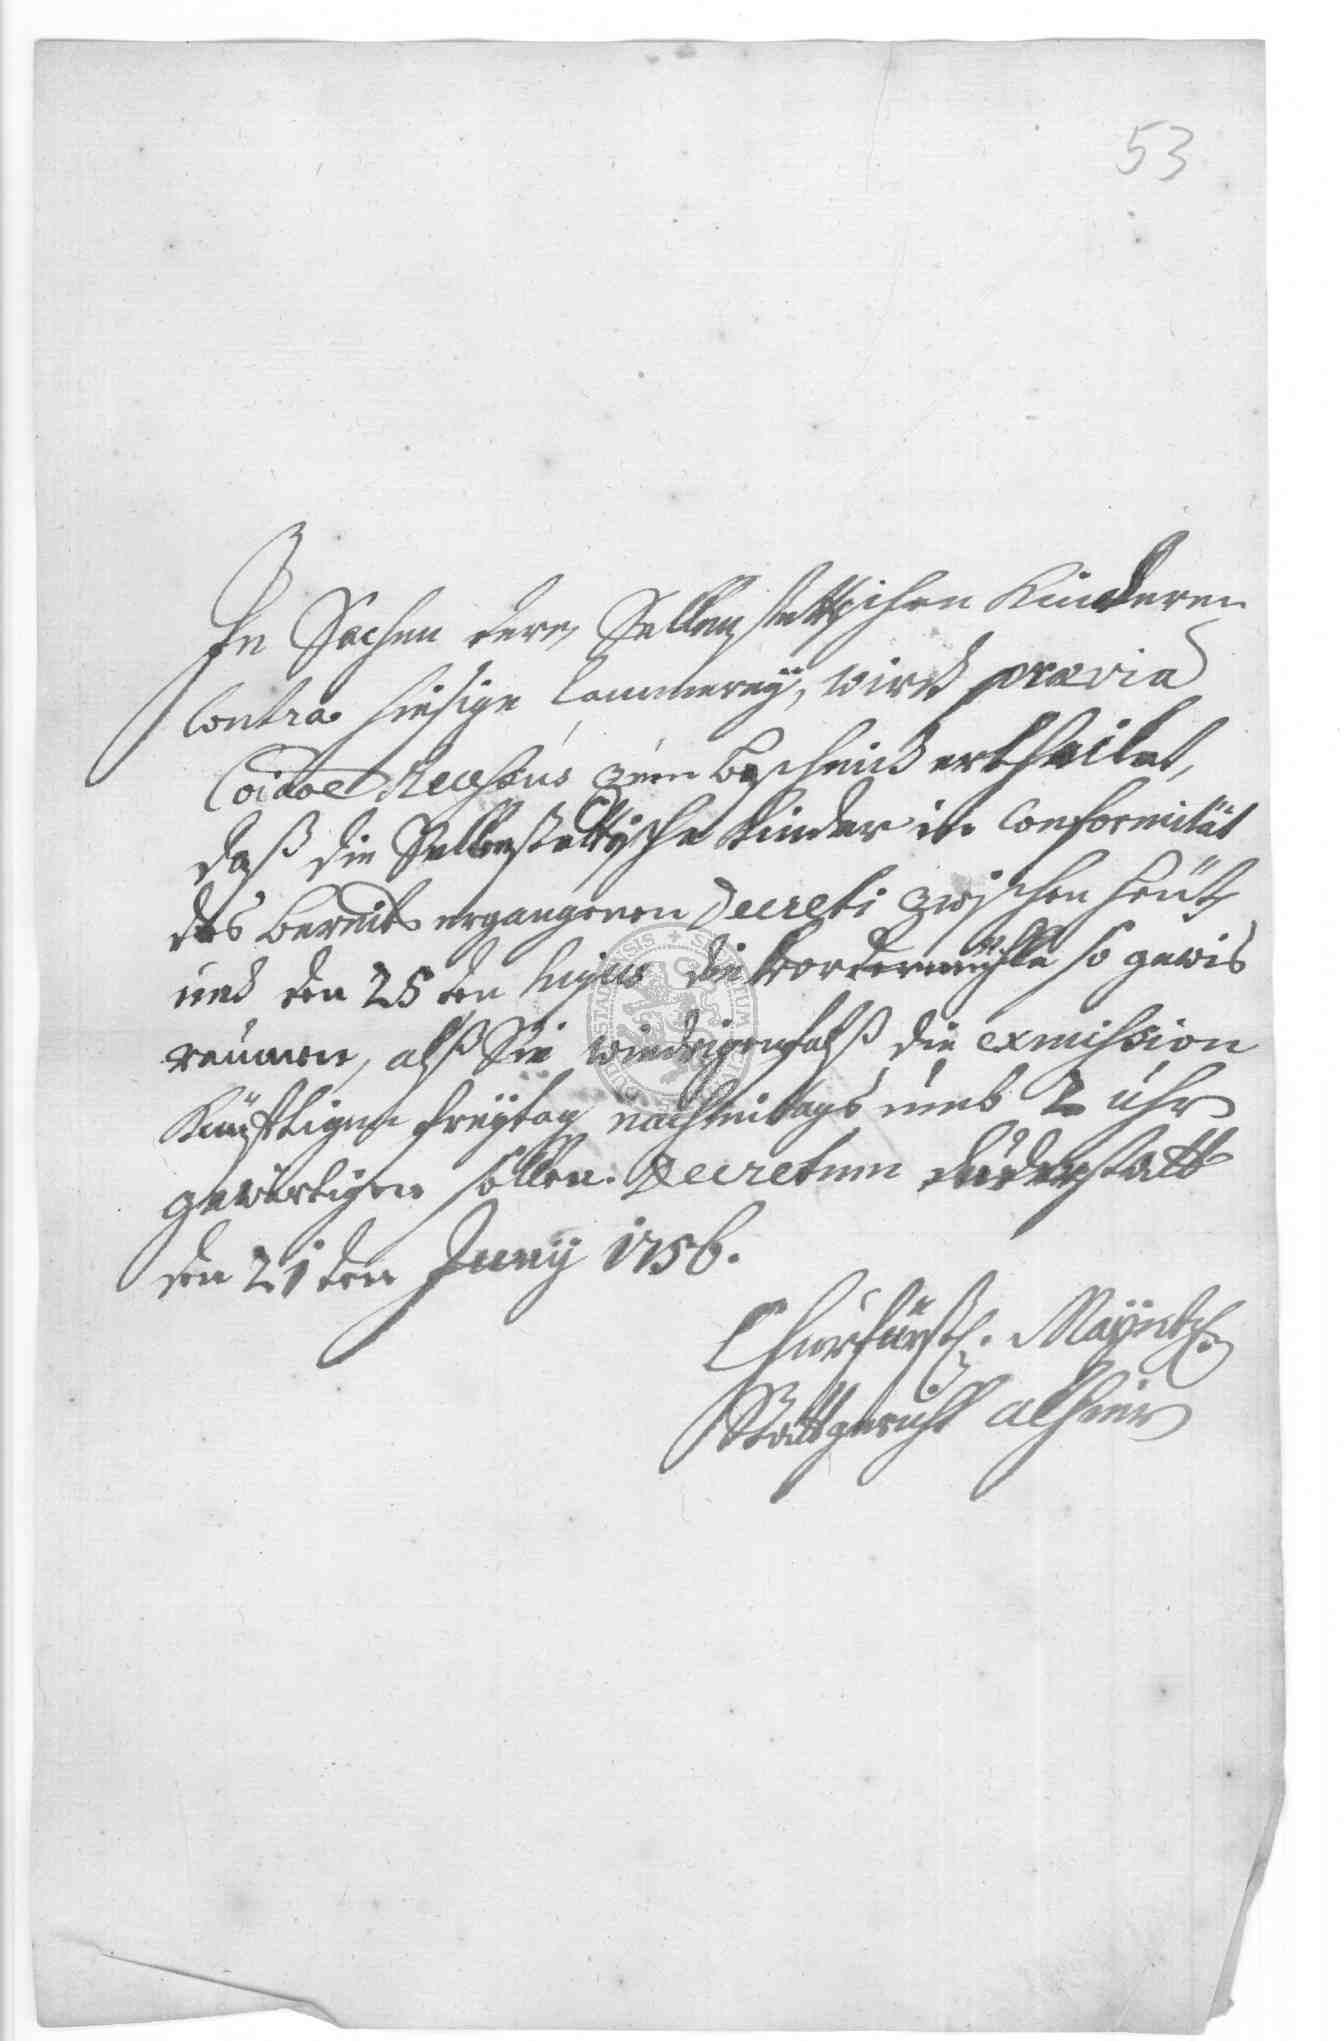 53
In Sachen deren Sellenstettischen Kinderen
Contra hiesige Cammerey, wird praevia
Recessus zum Bescheid ertheilet,
daß die Sellenstettische Kinder in Conformität
des bereits ergangenen Decreti zwischen heut
und den 25ten hujus die Vordermühle so gewis
reumen, alß Sie wiedrigenfalß die exmission
künftigen freytag nachmitags umb 2 uhr
gewärtigen sollen. Decretum Duderstatt
den 21ten Juny 1756.
Churfürstl. Mayntzl.
Stattgericht alhier